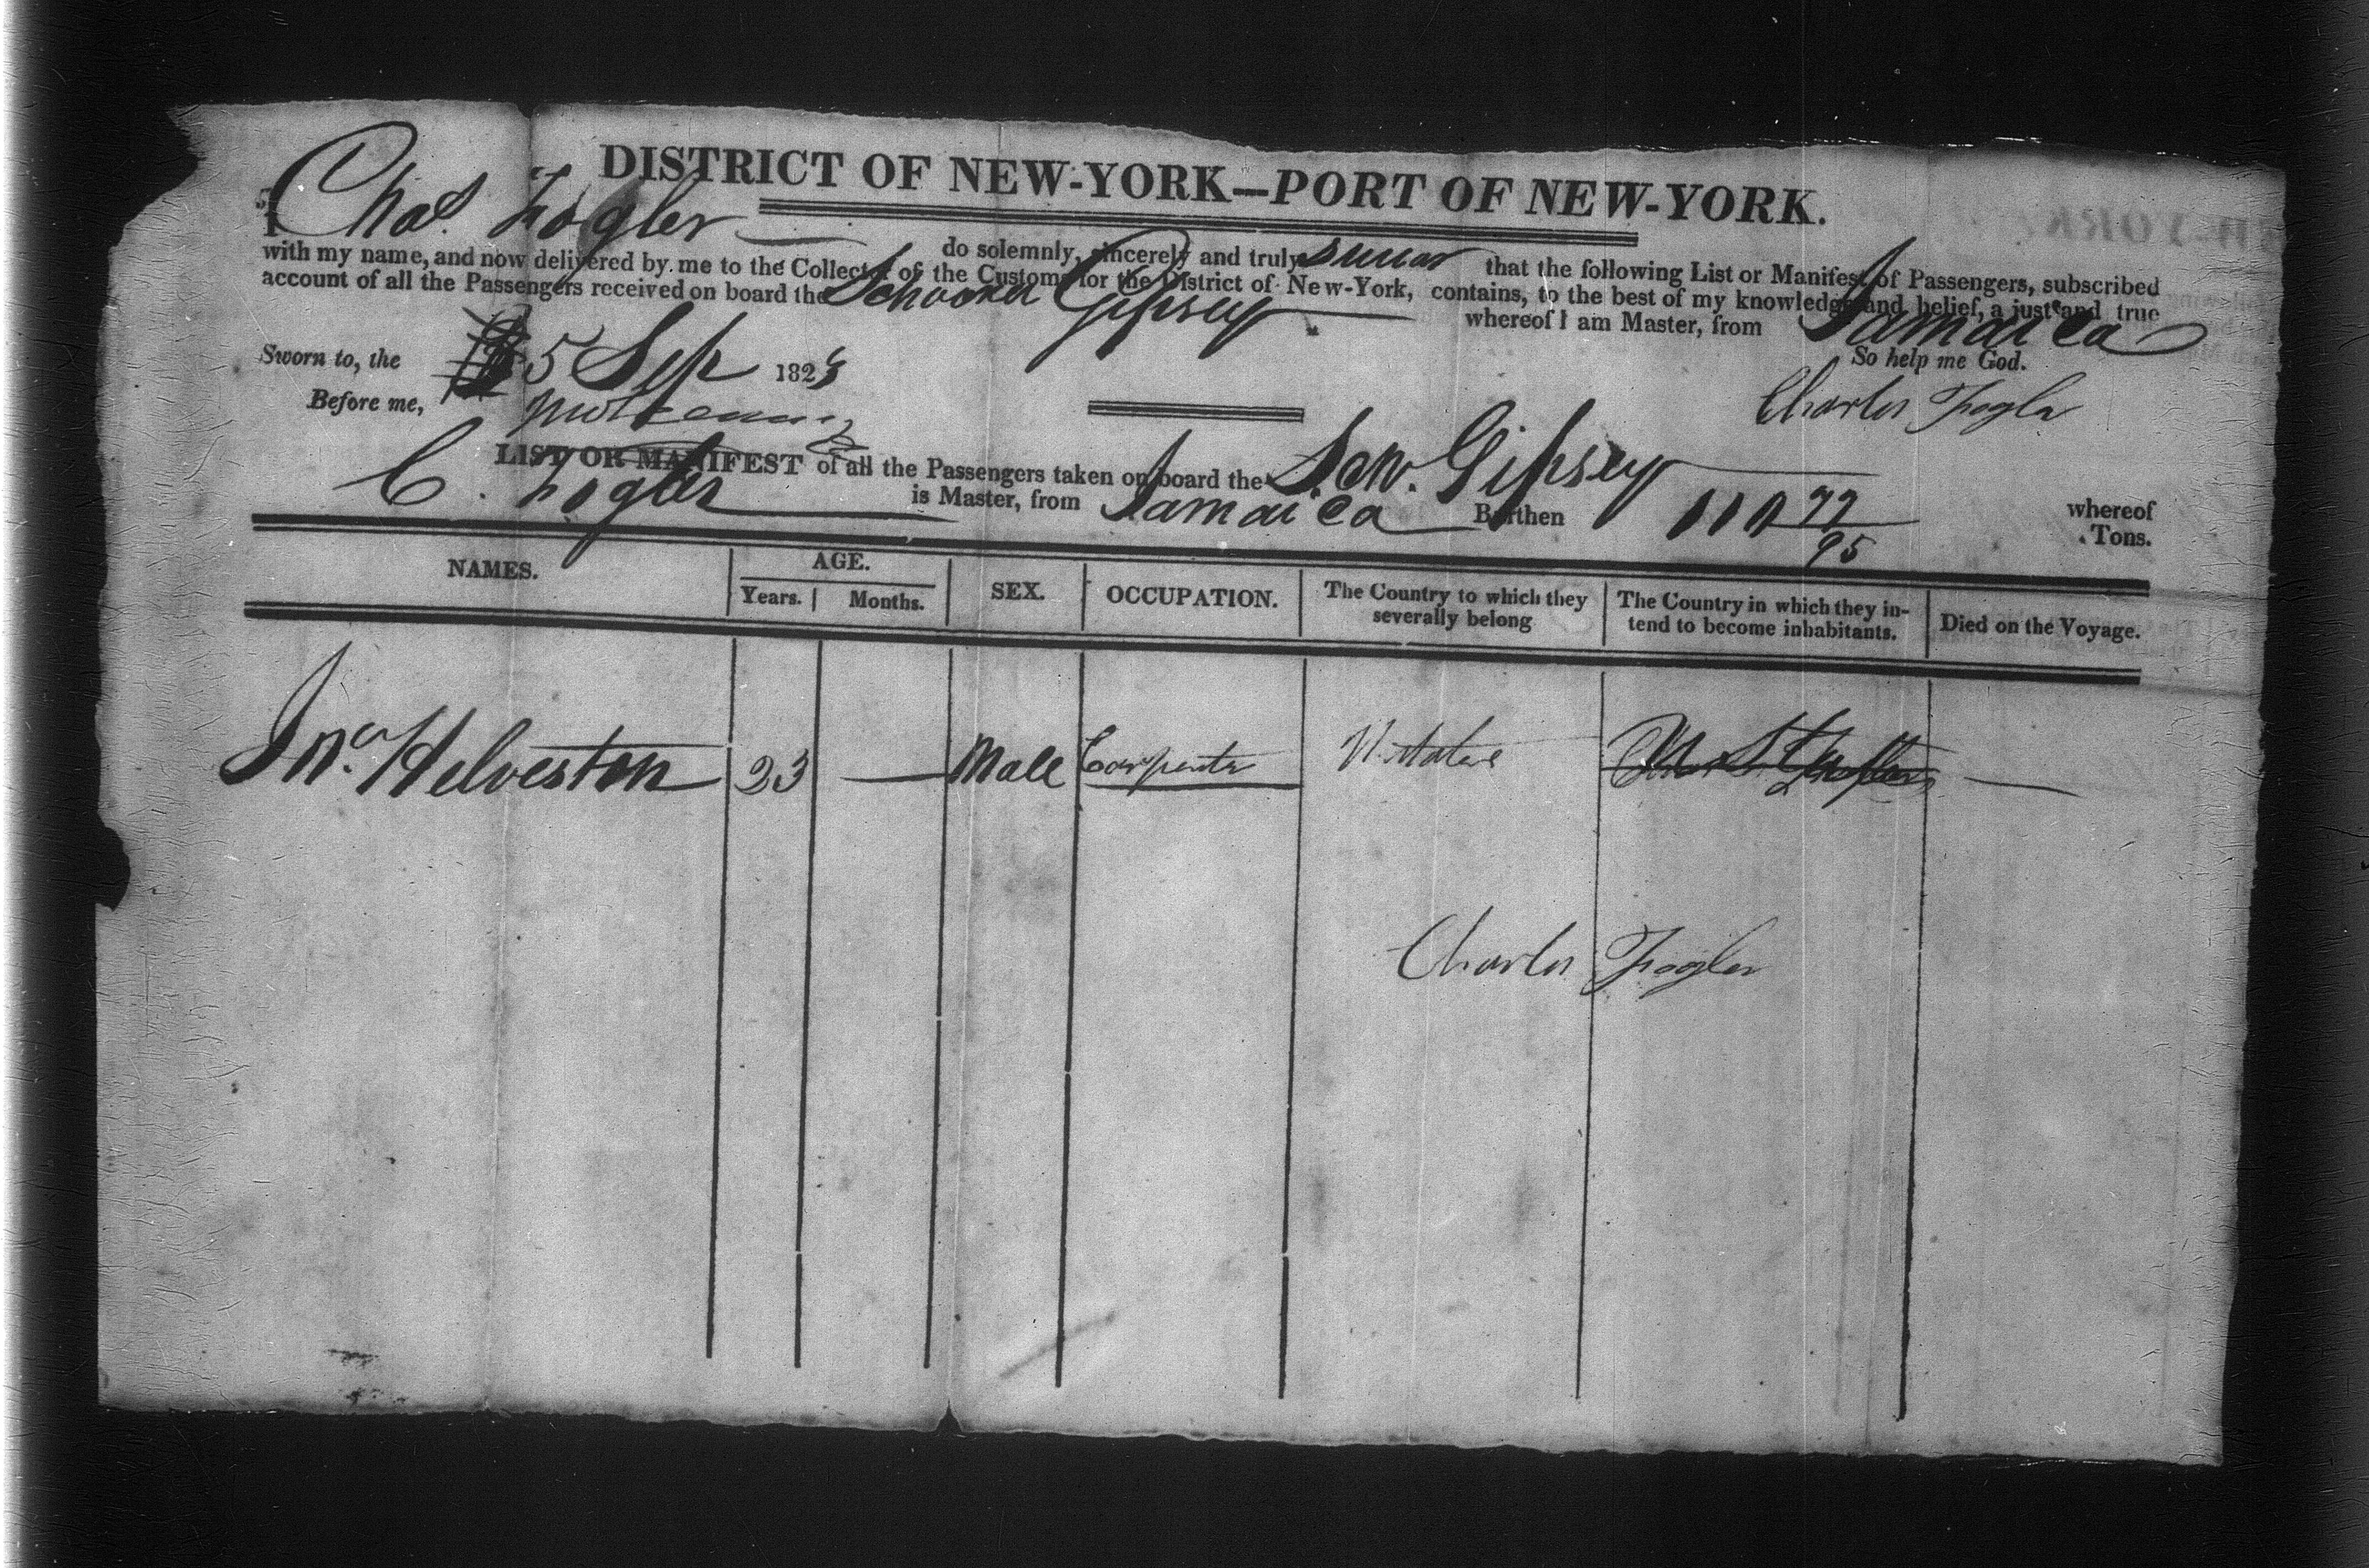 DISTRICT OF NEW-YORK—PORT OF NEW-YORK.
I Chas. Fogler do solemnly, sincerely and truly swear that the following List or Manifest of Passengers, subscribed
with my name, and now delivered by me to the Collector of the Customs for the District of New-York, contains, to the best of my knowledge and belief, a just and true
account of all the Passengers received on board the Schooner Gipsey whereof I am Master, from Jamaica
So help me God.
Sworn to, the 5 Sep 1823
Before me,
Charles Fogler
LIST OR MANIFEST of all the Passengers taken on board the Schr. Gipsey whereof
C. Fogler is Master, from Jamaica Burthen Tons.
NAMES. AGE. SEX. OCCUPATION. The Country to which they severally belong The Country in which they intend to become inhabitants. Died on the Voyage.
Years. Months.
Jno. Helveston 23 — Male Carpenter U. States —
Charles Fogler